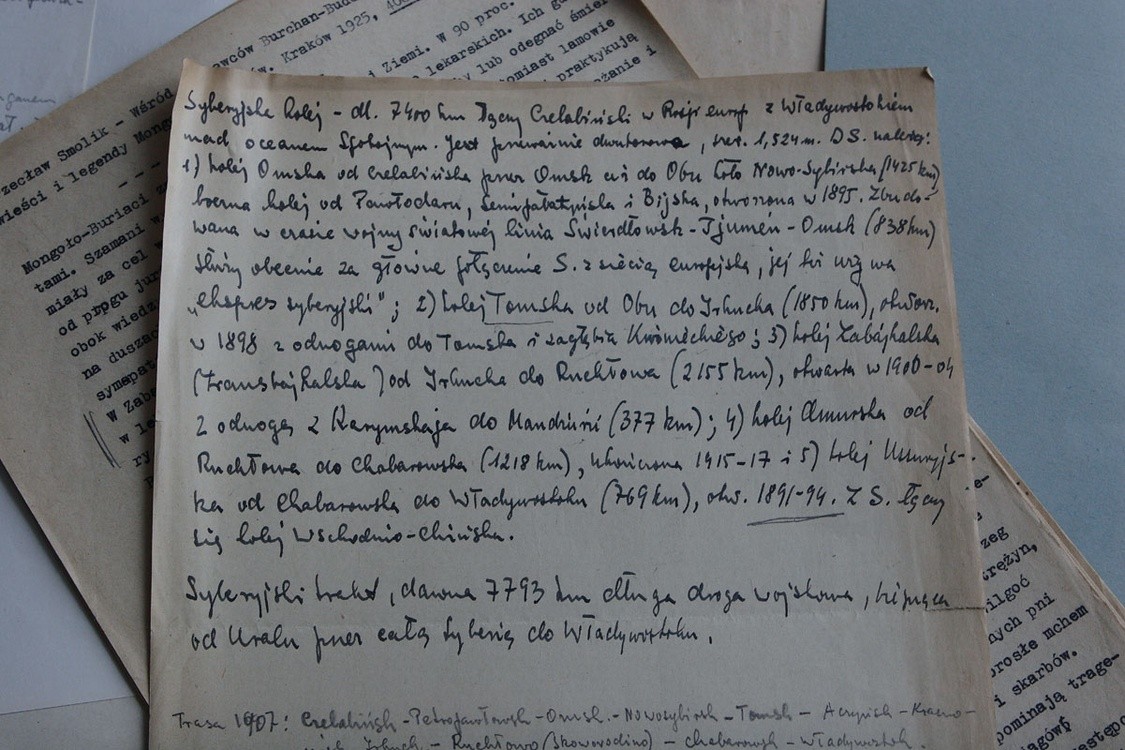 zecław Smolik - Wśród
wieści i legendy Mong
awców Burchan-Bud
w. Kraków 1925,
Ziemi. W 90 proc.
lekarskich. Ich
y lub odegnać śmier
tomiast lamowie
praktykują
żanie i
Mongoło-Buriaci
tami. Szamani
miały za cel
od progu jur
obok wiedz
na duszac
sympat
W Zaba
w le
ry
Syberyjska kolej - dł. 7400 km łączy Czelabiński w Rosji europ z Władywostokiem
nad oceanem Spokojnym. Jest przeważnie dwutorowa, szer. 1,524 m. D S. należą:
1) kolej Omska od Czelabińska przez Omsk aż do Obu koło Nowo-Sybirska (1425 km)
boczna kolej od Pawłodaru, Semipałatyńska i Bijska, otworzona w 1895. Zbudo-
wana w czasie wojny światowej linia Świerdłowsk-Tjumeń-Omsk (838 km)
służy obecnie za główne połączenie S. z siecią europejską, jej też używa
„ekspres syberyjski"; 2) kolej Tomska od Obu do Irkucka (1850 km), otworz.
w 1898 z odnogami do Tomska i zagłębia Kuźnieckiego; 3) kolej Zabajkalska
(transbajkalska) od Irkucka do Ruchłowa (2155 km), otwarta w 1900-04
z odnogą z Karymskaja do Mandżurii (377 km); 4) kolej Amurska od
Ruchłowa do Chabarowska (1218 km), ukończona 1915-17 i 5) kolej Ussuryjs-
ka od Chabarowska do Władywostoku (769 km), otw. 1891-94. Z S. łączy
się kolej Wschodnio-Chińska.
Syberyjski trakt, dawna 7793 km długa droga wojskowa, bieżąca
od Uralu przez całą Syberię do Władywostoku.
Trasa 1907: Czelabińsk-Petropawłowsk-Omsk-Nowosybirsk-Tomsk-Aczyńsk-Krasno-
Irkuck - Ruchłowo (Skoworodino) - Chabarowsk - Władywostok.
zeg
trężyn,
ilgoć
nych pni
orosłe mchem
i skarbów.
pominają trage-